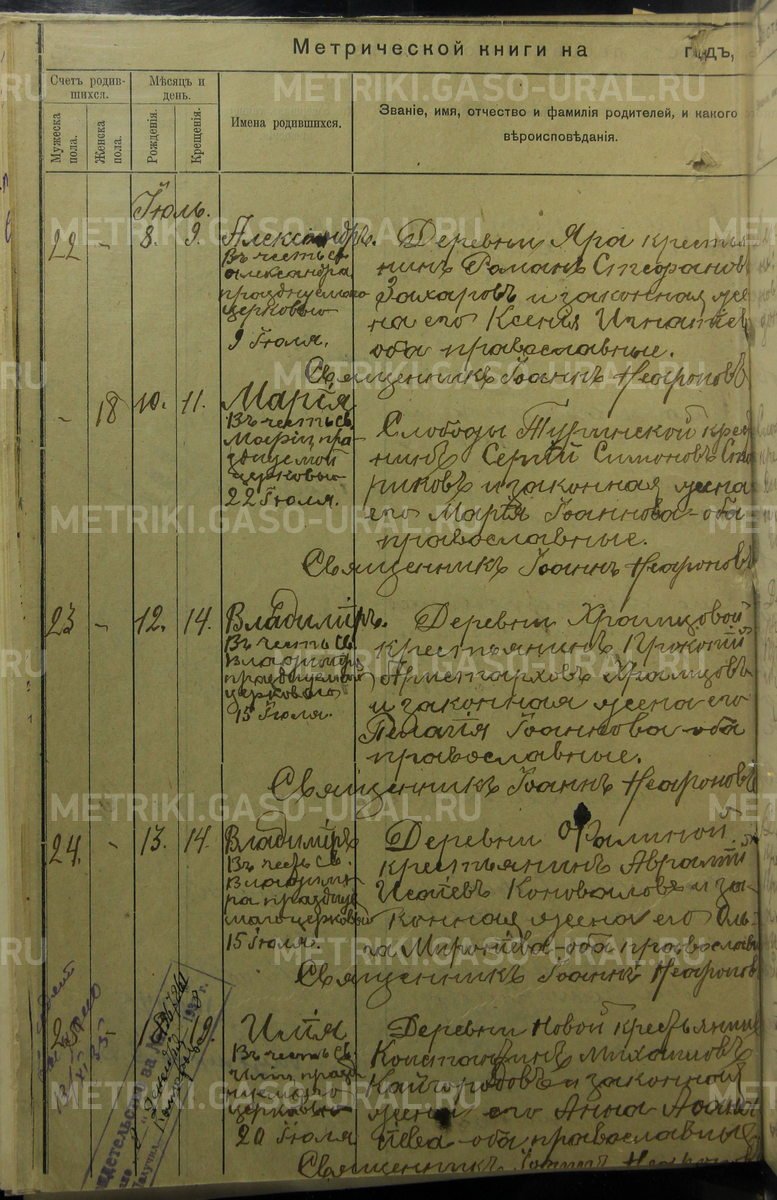 Метрической книги на годъ,
Счетъ родив-
шихся.
Мѣсяцъ и
день.
Мужеска
пола.
Женска
пола.
Рожденія.
Крещенія.
Имена родившихся.
Званіе, имя, отчество и фамилія родителей, и какого
вѣроисповѣданія.
Іюль.
22 - 8. 9. Александръ.
Въ честь св.
Александра
празднуемаго
церковью
9 Іюля.
Деревни Яра крестья
нинъ Романъ Стефановъ
Захаровъ и законная же
на его Ксенія Игнатіев
оба православные.
Священникъ Іоаннъ Неароновъ
- 18 10. 11. Марія
Въ честь св.
Маріи пра-
зднуемой
церковью
22 Іюля.
Слободы Туринской крест
нинъ Сергій Симоновъ Ста
риковъ и законная жена
его Марія Іоаннова-оба
православные.
Священникъ Іоаннъ Неароновъ
23 - 12. 14. Владиміръ.
Въ честь св.
Владиміра
празднуемаго
церковью
15 Іюля.
Деревни Храмцовой
крестьянинъ Прокопій
Аристарховъ Храмцовъ
и законная жена его
Пелагія Іоаннова-оба
православные.
Священникъ Іоаннъ Неароновъ
24. - 13. 14. Владиміръ
Въ честь св.
Владими-
ра праздну
маго церковью
15 Іюля.
Деревни Фалиной
крестьянинъ Аврамій
Исаевъ Коноваловъ и за-
конная жена его Оль-
га Миронова-оба православн
Священникъ Іоаннъ Неаронов
Илія
Въ честь св.
Иліи празд
церковью
20 Іюля
Деревни Новой крестьянин
Константинъ Михаиловъ
Кайгородовъ и законная
жена его Анна Аѳана
сіева-оба православные
Священникъ Іоаннъ Неаронов
METRIKI.GASO-URAL.RU